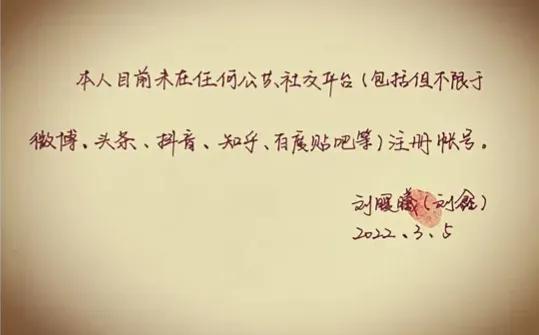 本人目前未在任何公共社交平台(包括但不限于
微博、头条、抖音、知乎、百度贴吧等)注册帐号。
刘暖曦(刘鑫)
2022.3.5